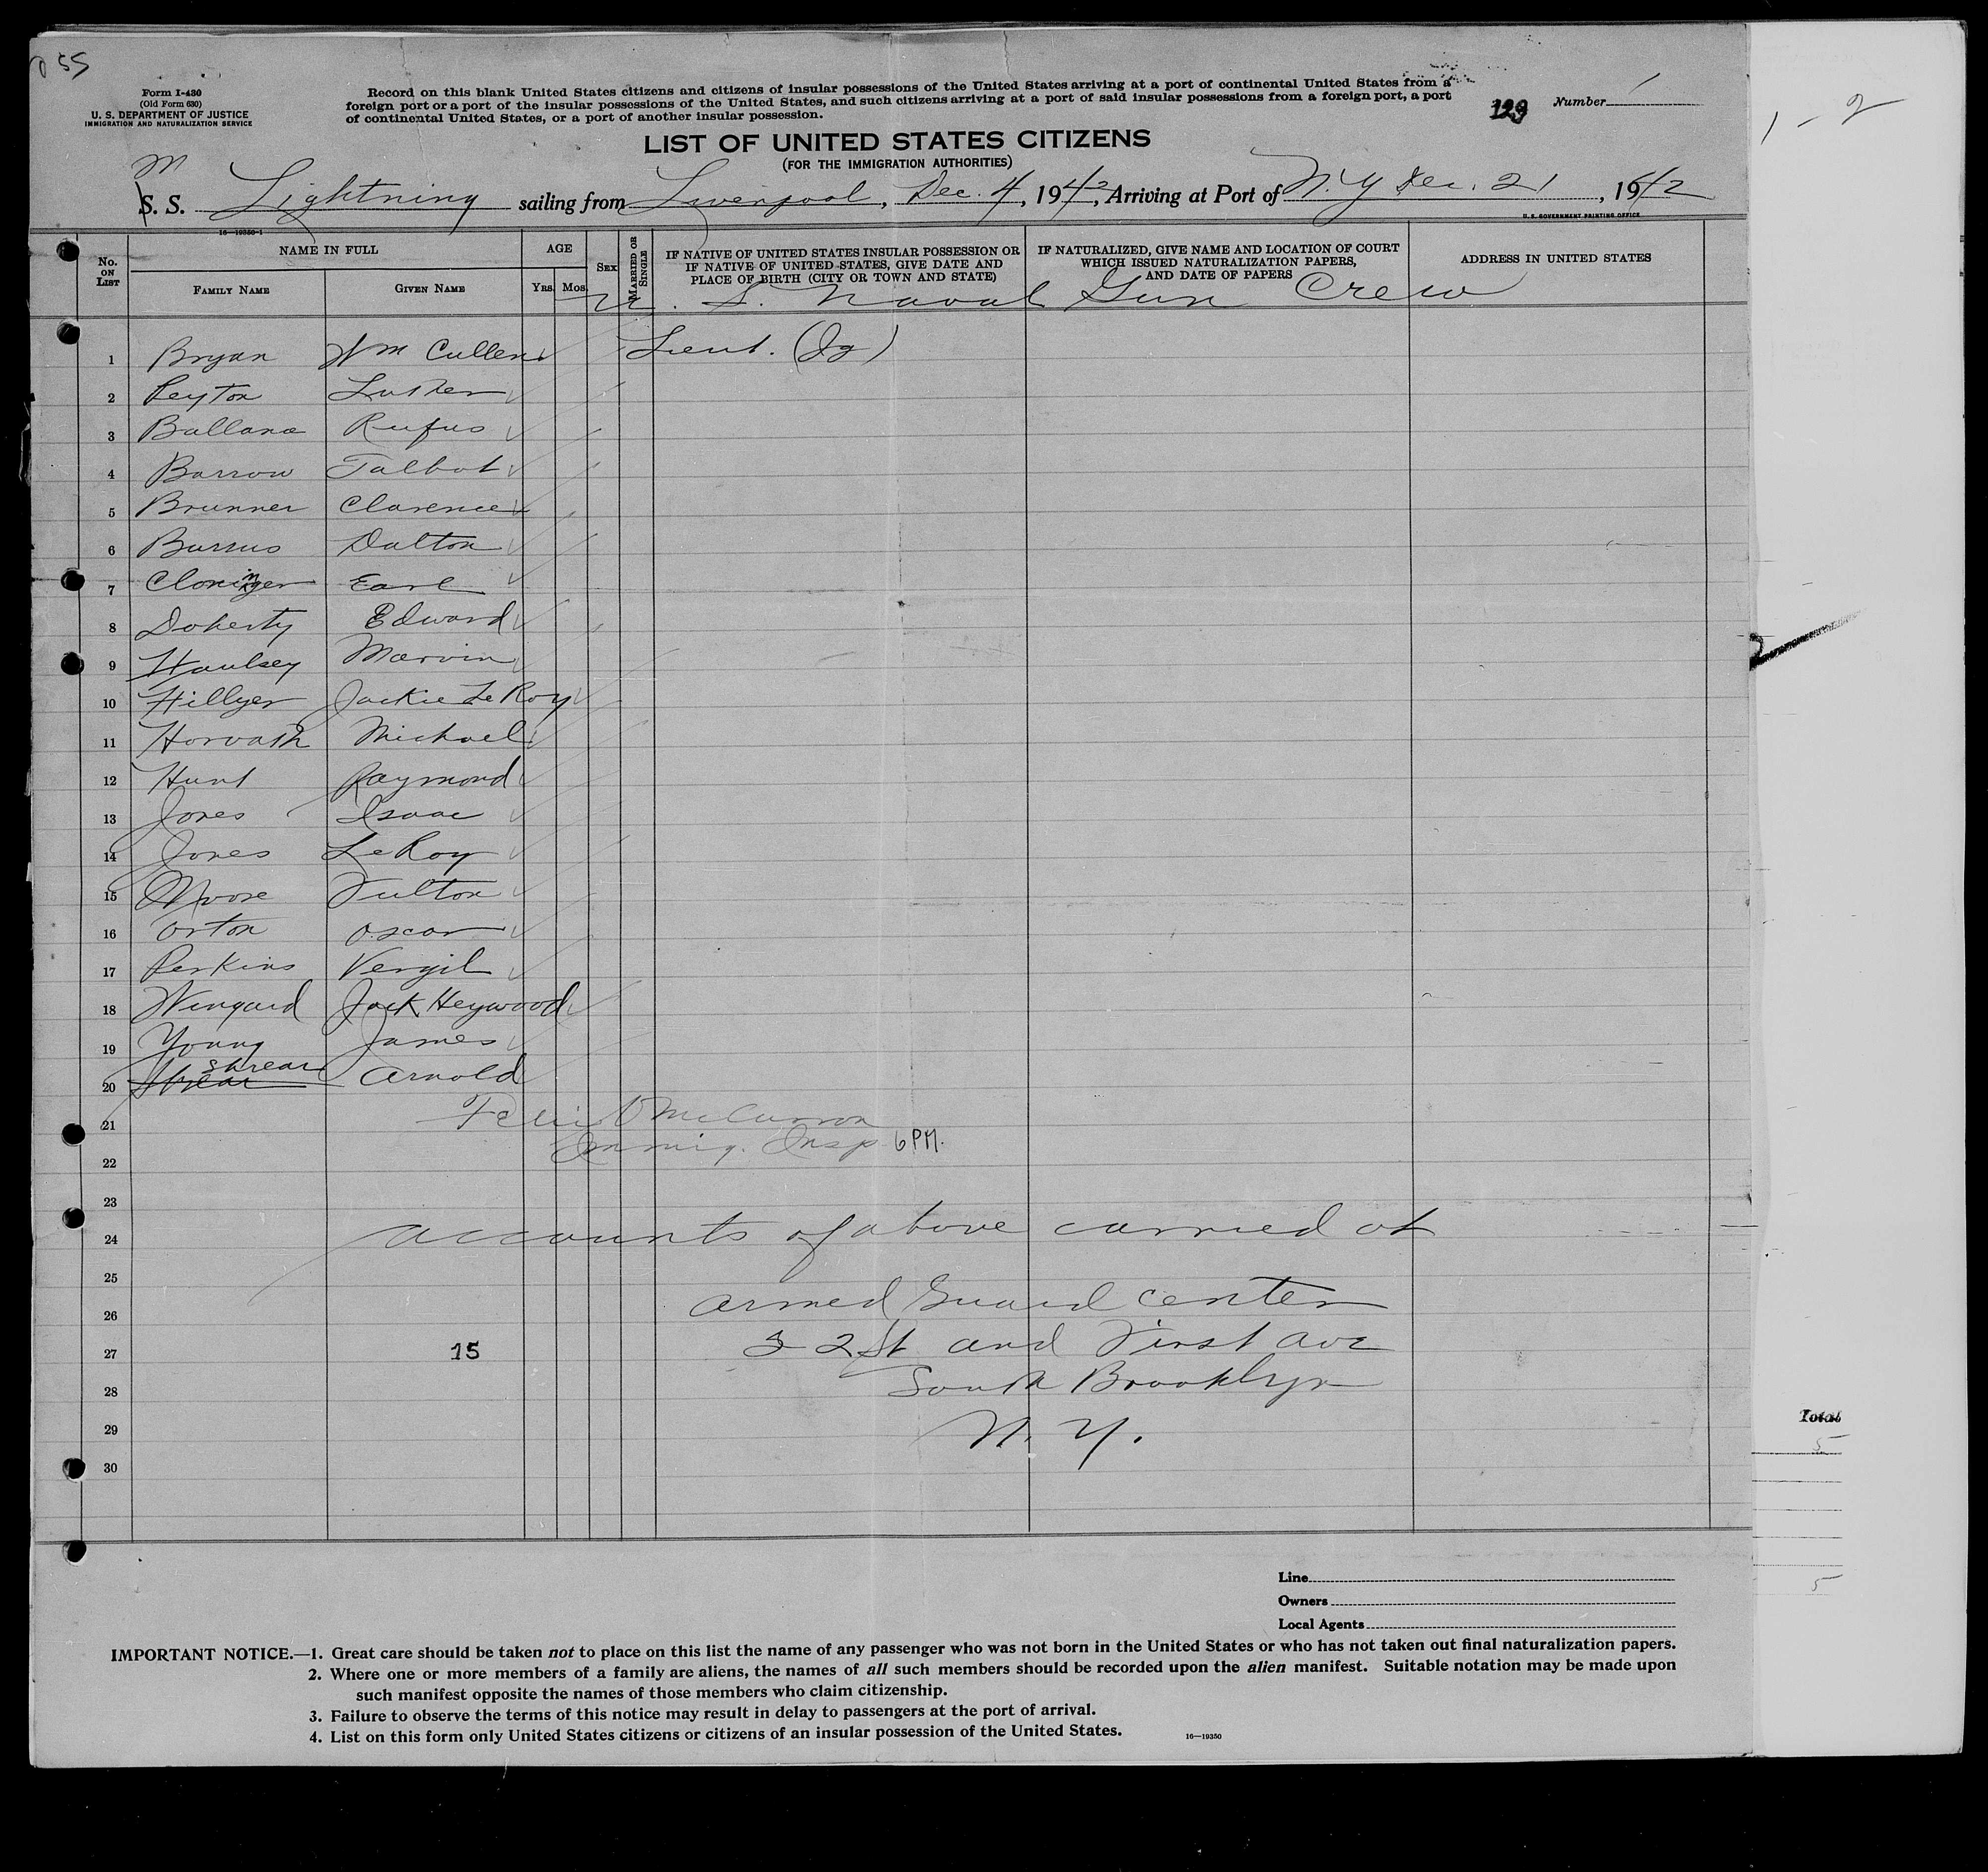 55
Form I-430
(Old Form 630)
U. S. DEPARTMENT OF JUSTICE
IMMIGRATION AND NATURALIZATION SERVICE
Record on this blank United States citizens and citizens of insular possessions of the United States arriving at a port of continental United States from a
foreign port or a port of the insular possessions of the United States, and such citizens arriving at a port of said insular possessions from a foreign port, a port
of continental United States, or a port of another insular possession.
129 Number 1
1 - 2
LIST OF UNITED STATES CITIZENS
(FOR THE IMMIGRATION AUTHORITIES)
M
S. S. Lightning sailing from Liverpool, Dec. 4, 1942, Arriving at Port of N.Y Dec. 21, 1942
U. S. GOVERNMENT PRINTING OFFICE
16—19350-1
No. ON LIST
NAME IN FULL
FAMILY NAME GIVEN NAME
AGE
Yrs. Mos.
SEX
MARRIED OR SINGLE
IF NATIVE OF UNITED STATES INSULAR POSSESSION OR
IF NATIVE OF UNITED STATES, GIVE DATE AND
PLACE OF BIRTH (CITY OR TOWN AND STATE)
IF NATURALIZED, GIVE NAME AND LOCATION OF COURT
WHICH ISSUED NATURALIZATION PAPERS,
AND DATE OF PAPERS
ADDRESS IN UNITED STATES
U. S. Naval Gun Crew
1 Bryan Wm Cullen Lieut. (Jg)
2 Peyton Luther
3 Ballana Rufus
4 Barrow Talbot
5 Brunner Clarence
6 Burrus Dalton
7 Cloninger Earl
8 Doherty Edward
9 Haulsey Marvin
10 Hillyer Jackie LeRoy
11 Horvath Michael
12 Hunt Raymond
13 Jones Isaac
14 Jones LeRoy
15 Moore Fulton
16 Orton Oscar
17 Perkins Vergil
18 Wingard Jack Heywood
19 Young James
20 Shrear Arnold
21
Immig. Insp 6 PM.
22
23
24 accounts of above carried at
25
26 Armed Guard Center
27 15 52 St and First Ave
28 South Brooklyn
29 N. Y.
30
Total
5
5
2
Line
Owners
Local Agents
IMPORTANT NOTICE.—1. Great care should be taken not to place on this list the name of any passenger who was not born in the United States or who has not taken out final naturalization papers.
2. Where one or more members of a family are aliens, the names of all such members should be recorded upon the alien manifest. Suitable notation may be made upon
such manifest opposite the names of those members who claim citizenship.
3. Failure to observe the terms of this notice may result in delay to passengers at the port of arrival.
4. List on this form only United States citizens or citizens of an insular possession of the United States.
16—19350